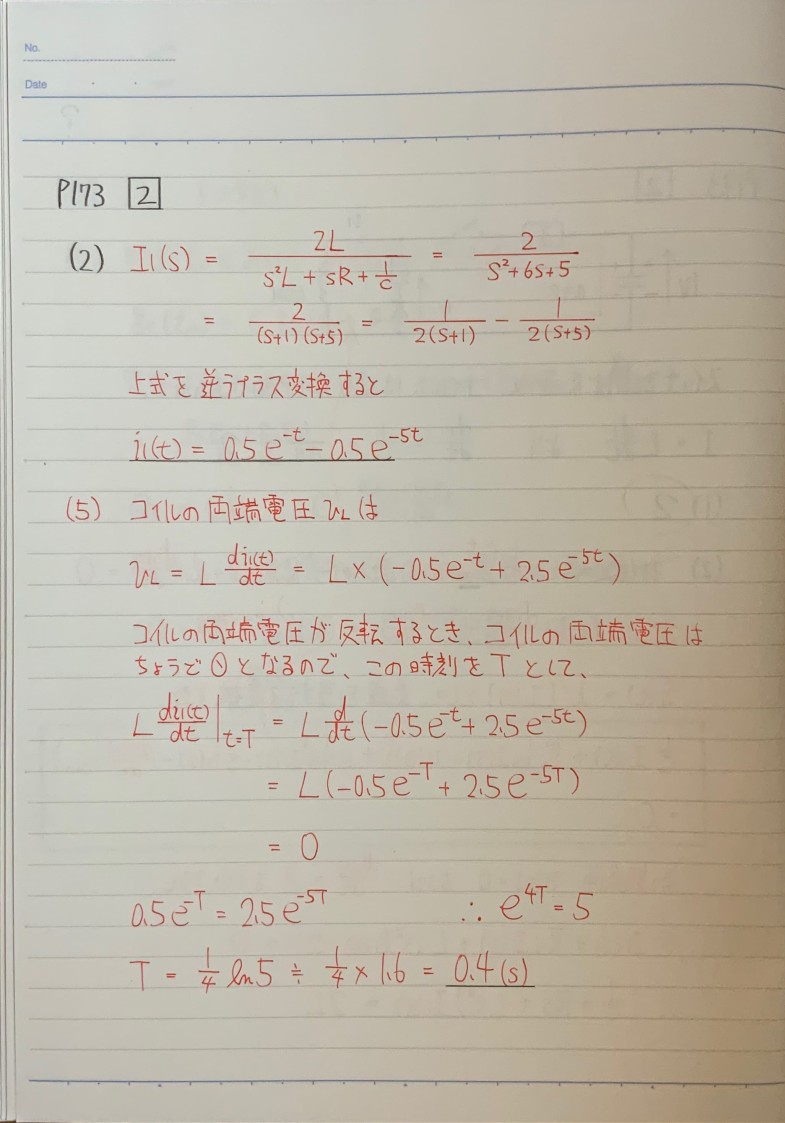 No.
Date
P173 2
(2) I1(s) = 2L / (s²L + sR + 1/C) = 2 / (s²+6s+5)
= 2 / ((s+1)(s+5)) = 1 / (2(s+1)) − 1 / (2(s+5))
上式を逆ラプラス変換すると
i1(t) = 0.5e^{-t} − 0.5e^{-5t}
(5) コイルの両端電圧 vL は
vL = L di1(t)/dt = L×(−0.5e^{-t} + 2.5e^{-5t})
コイルの両端電圧が反転するとき、コイルの両端電圧は
ちょうど0となるので、この時刻をTとして、
L di1(t)/dt |t=T = L d/dt (−0.5e^{-t} + 2.5e^{-5t})
= L(−0.5e^{-T} + 2.5e^{-5T})
= 0
0.5e^{-T} = 2.5e^{-5T} ∴ e^{4T} = 5
T = 1/4 ln5 ≒ 1/4 × 1.6 = 0.4(s)